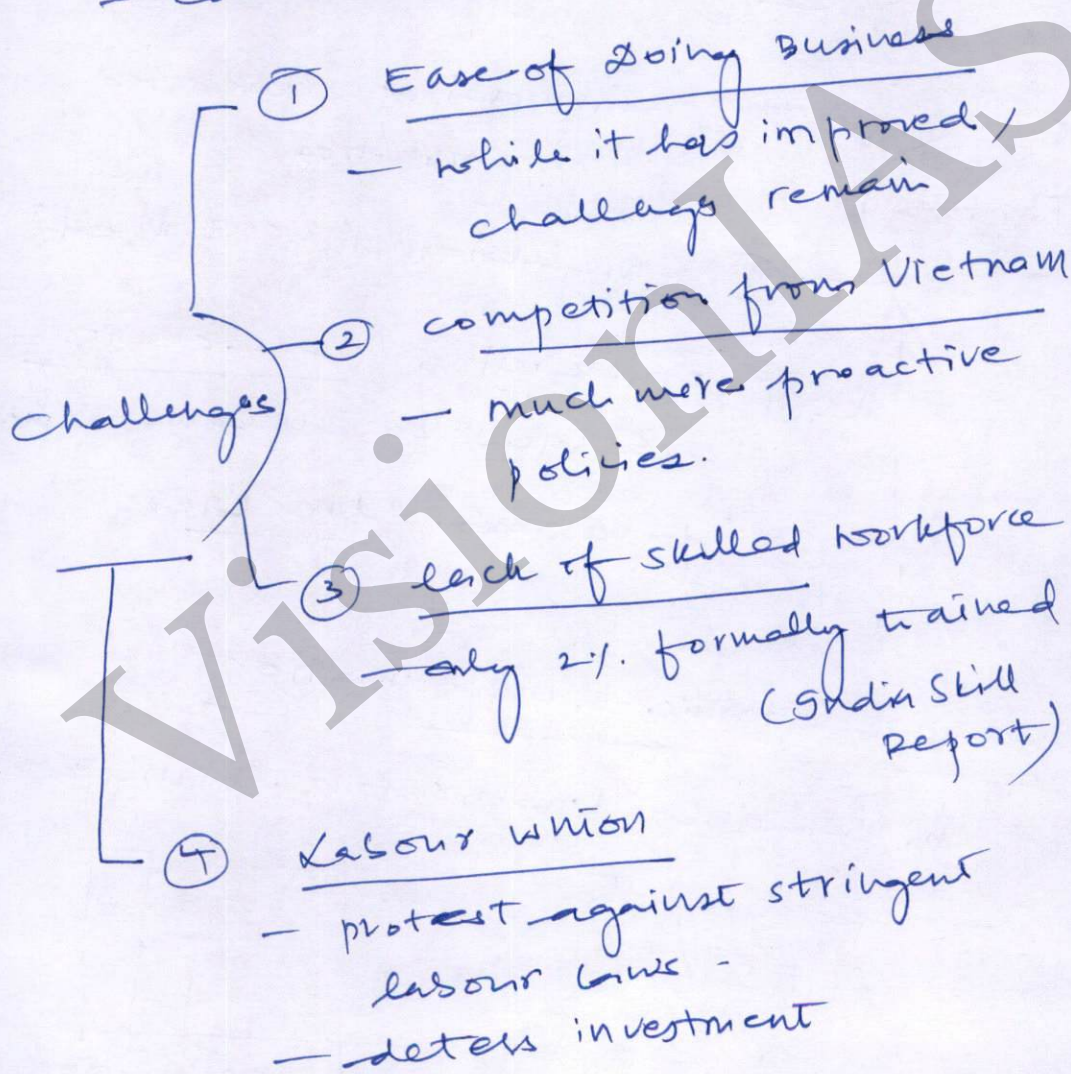 ① Ease of Doing Business
— while it has improved,
challenges remain
② competition from Vietnam
— much more proactive
policies.
Challenges
③ lack of skilled workforce
— only 2%. formally trained
(India Skill
Report)
④ Labour union
— protest against stringent
labour laws -
— deters investment
VisionIAS